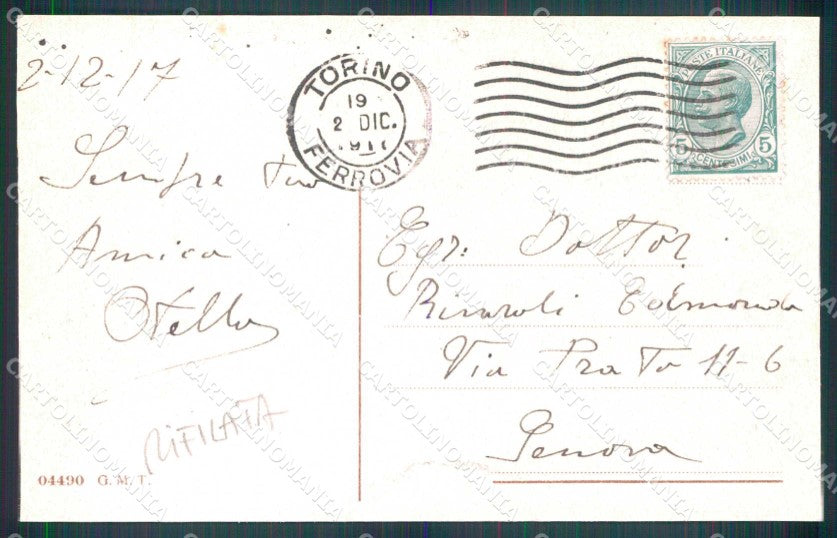 2-12-17
Sempre tua
Amica
Otella
RIFILATA
04490 G. M. T.
TORINO
19
2 DIC.
1917
FERROVIA
POSTE ITALIANE
5 5
CENTESIMI
Egr: Dottor
Edmondo
Via Prato 11-6
Genova
CARTOLINOMANIA